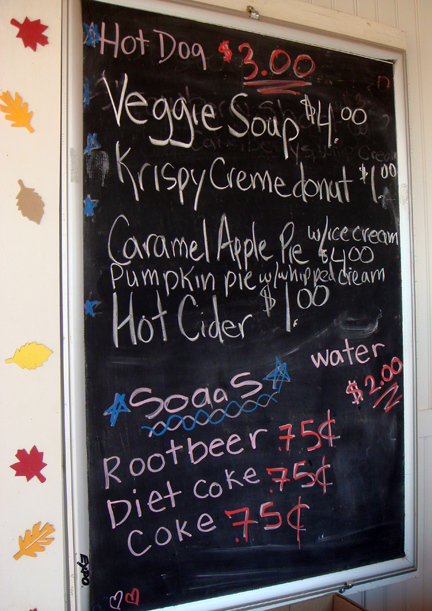 Hot Dog $3.00
Veggie Soup $4.00
Krispy Creme donut $1.00
Caramel Apple Pie w/ice cream $4.00
Pumpkin pie w/whipped cream
Hot Cider $1.00
water
$2.00
Sodas
Rootbeer .75¢
Diet coke .75¢
Coke .75¢
EXPO